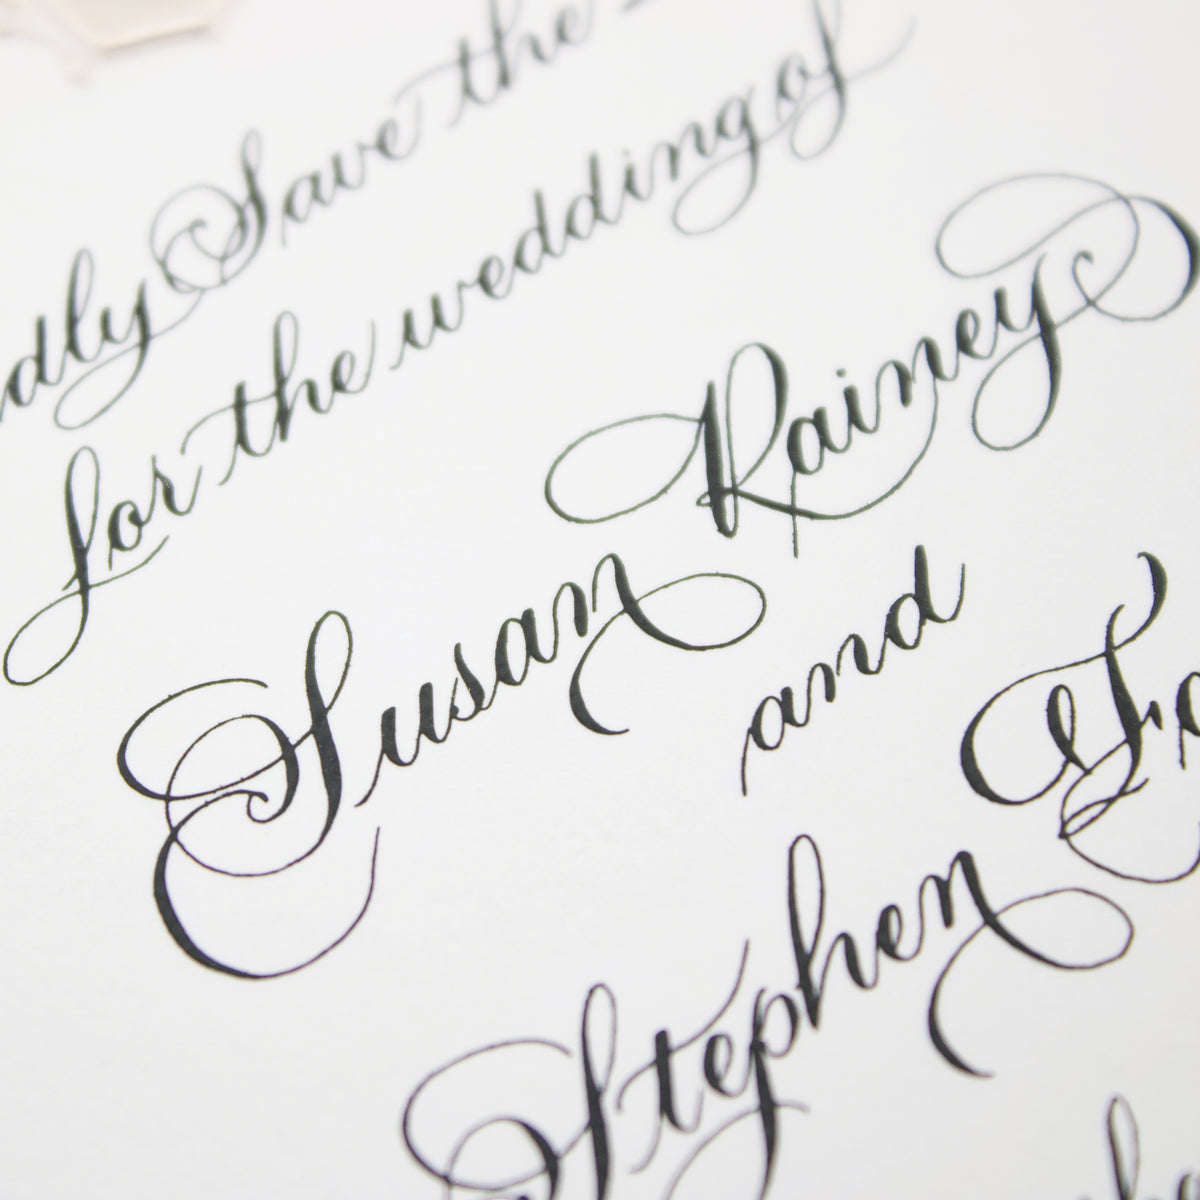 dly Save the
for the wedding of
Susan Rainey
and
Stephen